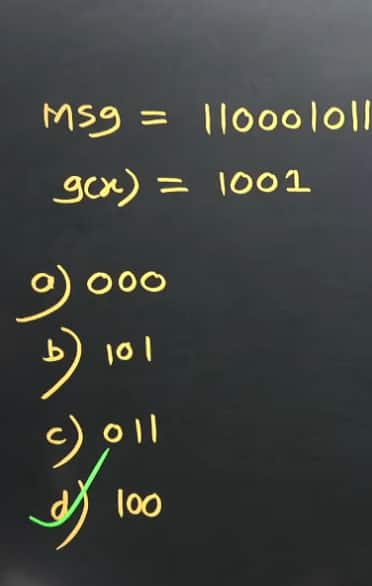 Msg = 110001011
g(x) = 1001
a) 000
b) 101
c) 011
d) 100